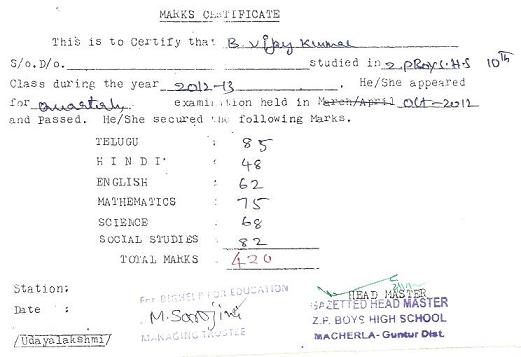 MARKS CERTIFICATE
This is to Certify that B. Vijay Kumar
S/o.D/o. studied in Z.P Boys.H.S 10th
Class during the year 2012-13. He/She appeared
for Quarterly examination held in March/April Oct-2012
and Passed. He/She secured the following Marks.
TELUGU : 85
HINDI : 48
ENGLISH : 62
MATHEMATICS : 75
SCIENCE : 68
SOCIAL STUDIES : 82
TOTAL MARKS : 420
Station: HEAD MASTER
For BIGHELP FOR EDUCATION GAZETTED HEAD MASTER
Date : M. Sarojini Z.P. BOYS HIGH SCHOOL
MANAGING TRUSTEE MACHERLA - Guntur Dist.
/Udayalakshmi/